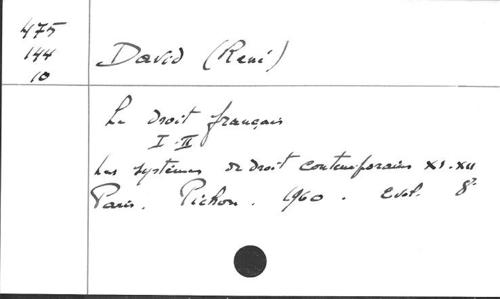 475
144
10
David (René)
Le droit français
I-II
Les systèmes de droit contemporains XI-XII
Paris. Pichon. 1960. 2 vol. 8º